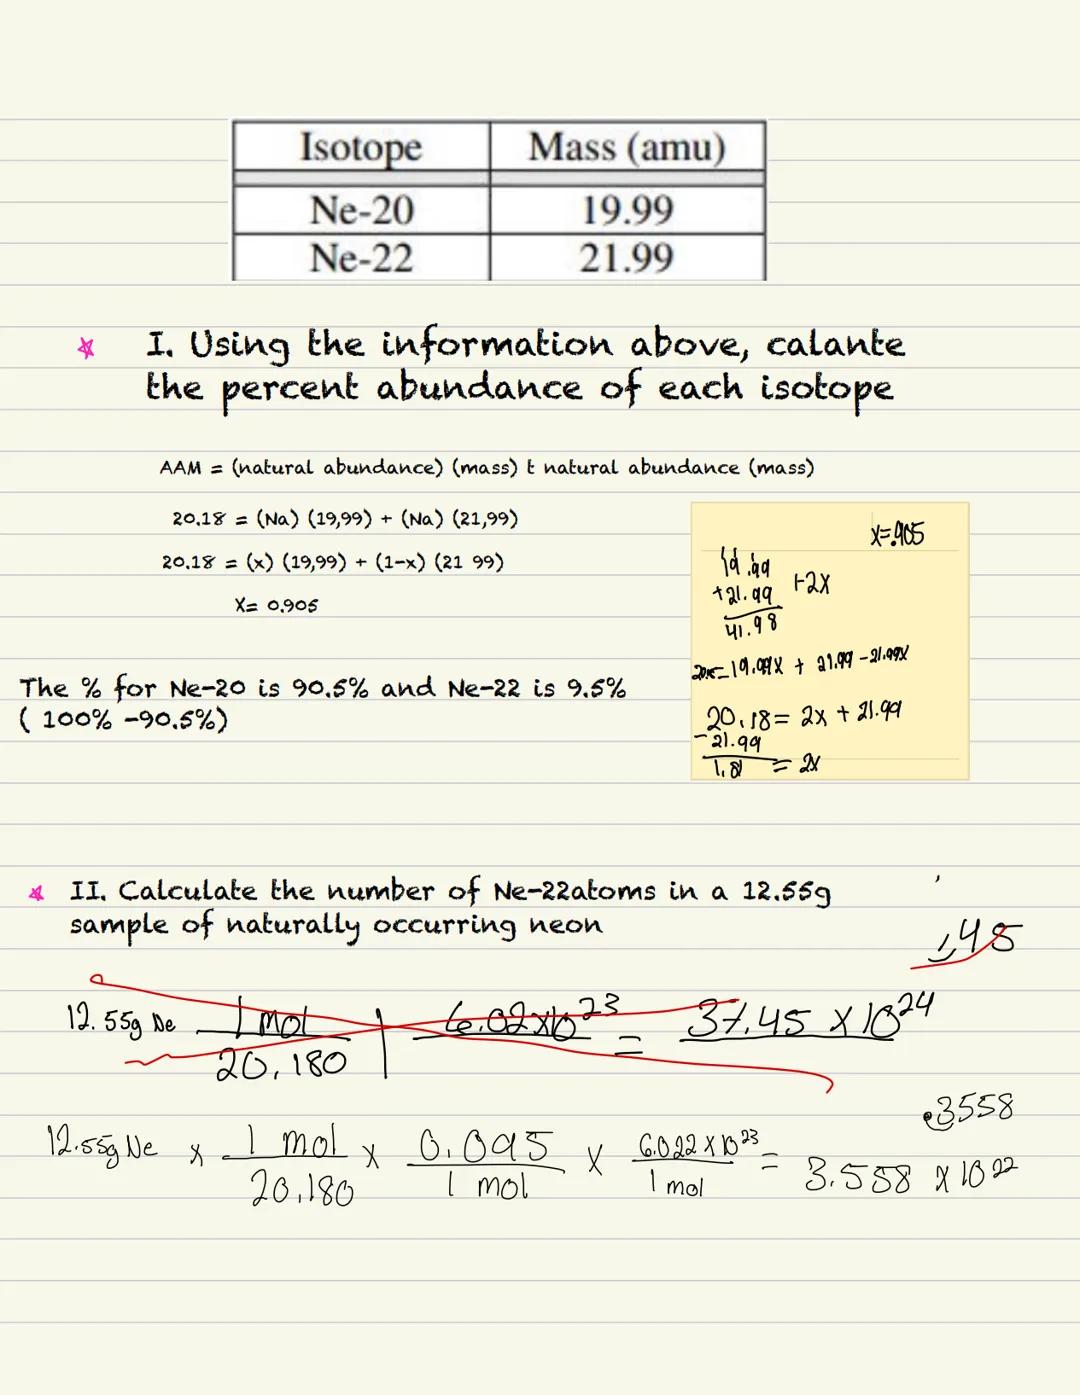 Isotope Mass (amu)
Ne-20 19.99
Ne-22 21.99
I. Using the information above, calante
the percent abundance of each isotope
AAM = (natural abundance) (mass) t natural abundance (mass)
20.18 = (Na) (19,99) + (Na) (21,99)
20.18 = (x) (19,99) + (1-x) (21 99)
X= 0.905
The % for Ne-20 is 90.5% and Ne-22 is 9.5%
( 100% -90.5%)
X=.905
19.99
+21.99 +2X
41.98
19.99X + 21.99 -21.99X
20.18= 2x + 21.99
-21.99
1.81 = 2X
II. Calculate the number of Ne-22atoms in a 12.55g
sample of naturally occurring neon
,45
12.55g Ne 1 mol 6.02x10²³ = 37.45 X 10²⁴
20.180
.3558
12.55g Ne x 1 mol x 0.095 x 6.022 X 10²³ = 3.558 X 10²²
20.180 1 mol 1 mol